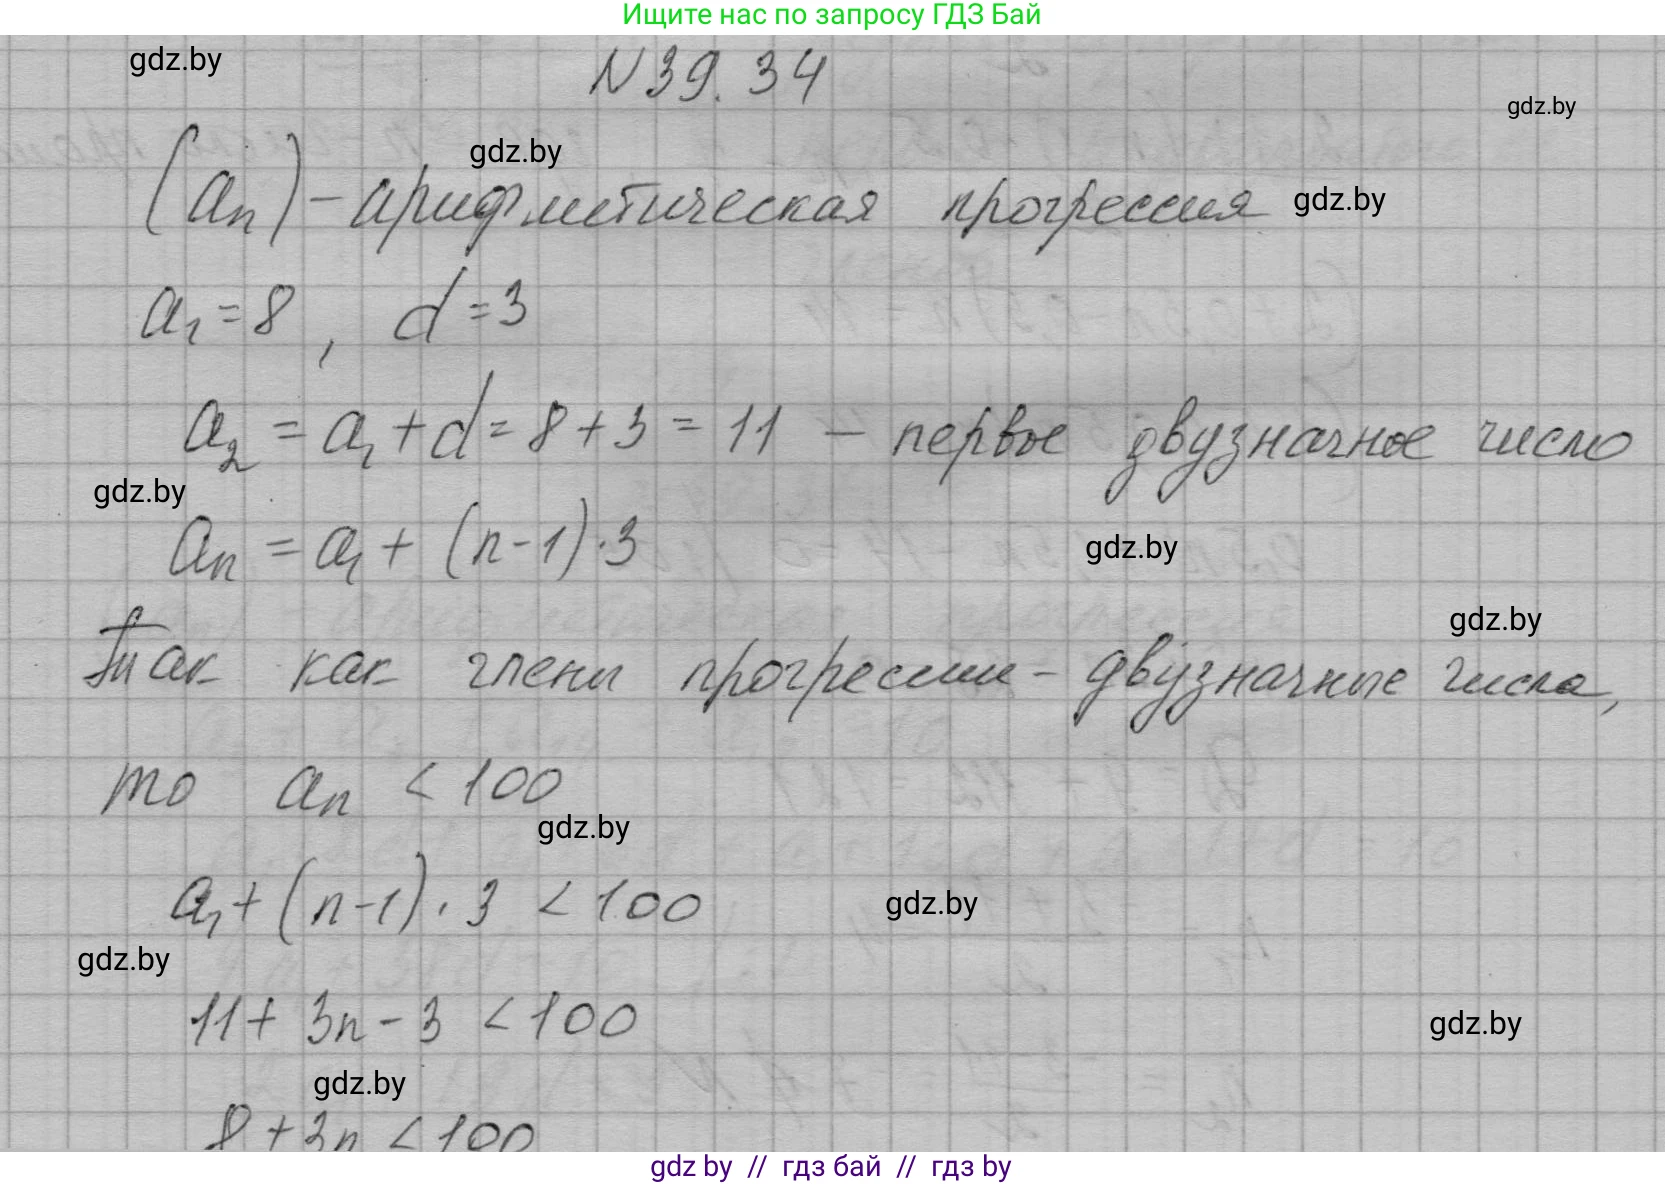 Ищите нас по запросу ГДЗ Бай
gdz.by
N 39.34
gdz.by
gdz.by
(aₙ) - арифметическая прогрессия
gdz.by
a₁ = 8 , d = 3
a₂ = a₁ + d = 8 + 3 = 11 - первое двузначное число
gdz.by
aₙ = a₁ + (n-1)·3
gdz.by
gdz.by
Так как члены прогрессии - двузначные числа,
то aₙ < 100
gdz.by
a₁ + (n-1)·3 < 100
gdz.by
gdz.by
11 + 3n - 3 < 100
gdz.by
gdz.by
8 + 3n < 100
gdz by // гдз бай // гдз by